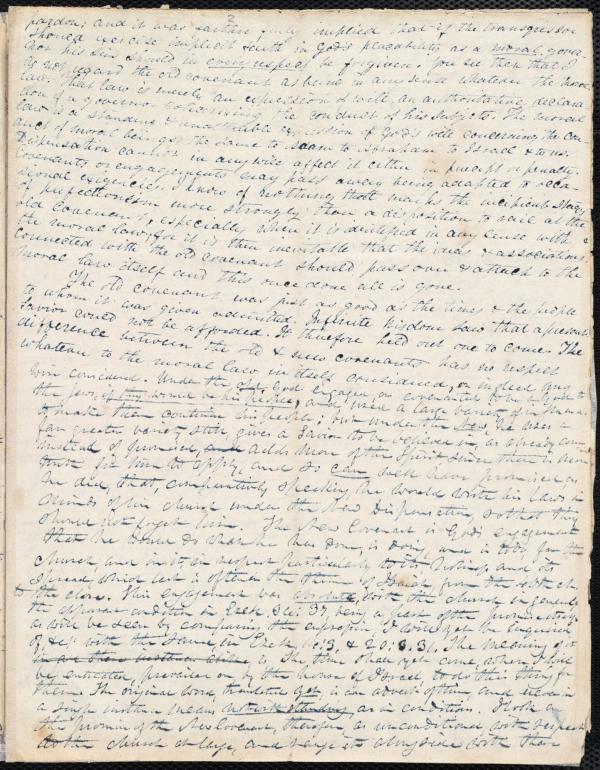 2
pardon; and it was further fully implied that if the transgressor
should exercise implicit faith in God's placability as a moral gover
nor his sin should in every respect be forgiven. You see then that I
do not regard the old covenant as being in any sense whatever the moral
law. That law is merely an expression of will, an authoritative declara
tion of a governor concerning the conduct of his subjects. The moral
law is a standing & unalterable expression of God's will concerning the con
duct of moral beings, the same to Adam to Abraham to Israel & to us.
Dispensation cannot in any wise affect it either in precept or penalty.
Covenants or engagements may pass away being adapted to occa
sional exigencies. I know of nothing that marks the incipient stages
of perfectionism more strongly than a disposition to rail at the
old Covenant, especially when it is identified in any sense with
the moral law; for it is then inevitable that the ideas & associations
connected with the old covenant should pass over & attach to the
moral law itself and this once done all is gone.
The old covenant was just as good as the times & the people
to whom it was given admitted. Infinite wisdom saw that a present
Savior could not be afforded. It therefore held out one to come. The
difference between the old & new covenants has no respect
whatever to the moral law in itself considered, or indeed
considered. Under the old, God engaged, or covenanted to be a God to
the Jews, if they would be his people, and used a large variety of means
to make them continue his people; but under the New, he uses a
far greater variety, still gives a Savior to be believed in, as already come
instead of promised, adds more of the Spirit since there is more
truth for him to apply, and so can well have promised as
he did, that, comparatively speaking he would write his laws in
minds of his church under the New Dispensation, so that they
should not forget him. The New Covenant is God's engagement
that he would do what he has done, is doing, and is to do, for the
church, and in it, in respect particularly to its and its
spread, which last is often the theme of Isaiah, from the 40th ch.
to the close. This engagement was absolute, with the church in general
the apparent condition in Ezek. 36: 37 being a part of the promise itself
as will be seen by comparing the expression I will yet be enquired
of &c. with the same, in Ezek. & 20: 3. 31. The meaning of it
is The time shall yet come, when I shall
be entreated, prevailed on by the house of Israel, to do this thing for
them. The original word, translated yet, is an adverb of time, and never in
a single instance means notwithstanding, or on conditions. I look on
the promise of the New Covenant, therefore, as unconditional with respect
to the church at large, and range it alongside with that